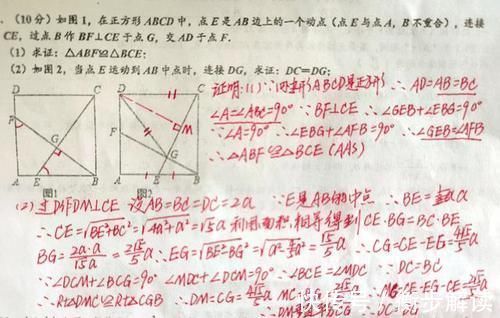 .(10分)如图1,在正方形ABCD中,点E是AB边上的一个动点(点E与点A,B不重合),连接
CE,过点B作BF⊥CE于点G,交AD于点F.
(1)求证:△ABF≌△BCE;
(2)如图2,当点E运动到AB中点时,连接DG,求证:DC=DG;
证明:(1)∵四边形ABCD是正方形 ∴AD=AB=BC
∠A=∠ABC=90° ∵BF⊥CE ∴∠GEB+∠EBG=90°
∵∠A=90° ∴∠EBG+∠AFB=90° ∴∠GEB=∠AFB
∴△ABF≌△BCE(AAS)
D C
F G
A E B
图1
D C
F M
G
A E B
图2
(2)过D作DM⊥CE 设AB=BC=DC=2a ∵E是AB的中点 ∴BE=
∴CE=√BE²+BC²=√4a²+a²=√5a 利用面积相等得到CE·BG=BC·BE
BG=2a·a/√5a=2√5/5a ∴EG=√BE²-BG²=
∴CG=CE-EG=4√5/5a
∵∠DCM+∠BCG=90° ∠MDC+∠DCM=90° ∴∠BCE=∠MDC ∵DC=BC
∴Rt△DMC≌Rt△CGB ∴DM=CG=4√5/5a